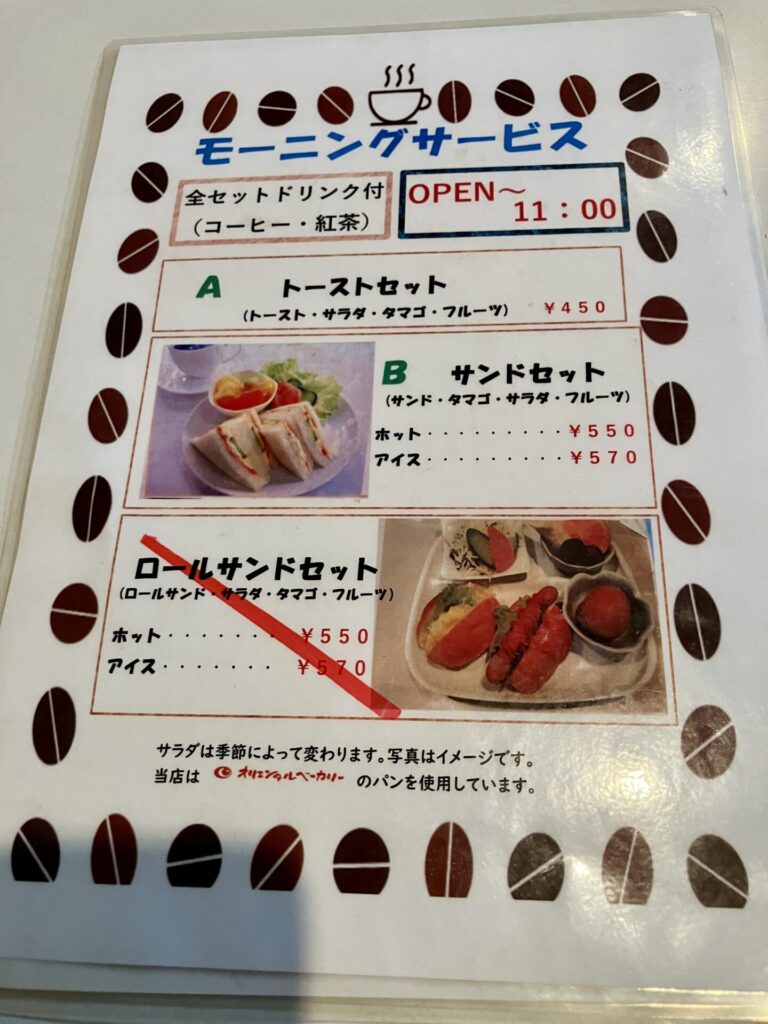 モーニングサービス
全セットドリンク付
（コーヒー・紅茶）
OPEN～
11：00
A トーストセット
（トースト・サラダ・タマゴ・フルーツ） ￥４５０
B サンドセット
（サンド・タマゴ・サラダ・フルーツ）
ホット・・・・・・・・・・￥５５０
アイス・・・・・・・・・・￥５７０
ロールサンドセット
（ロールサンド・サラダ・タマゴ・フルーツ）
ホット・・・・・・・ ￥５５０
アイス・・・・・・・ ￥５７０
サラダは季節によって変わります。写真はイメージです。
当店は オリエンタルベーカリー のパンを使用しています。